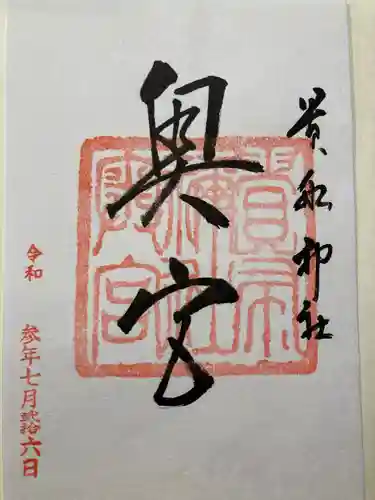 貴船神社
奥宮
令和
参年七月弐拾六日